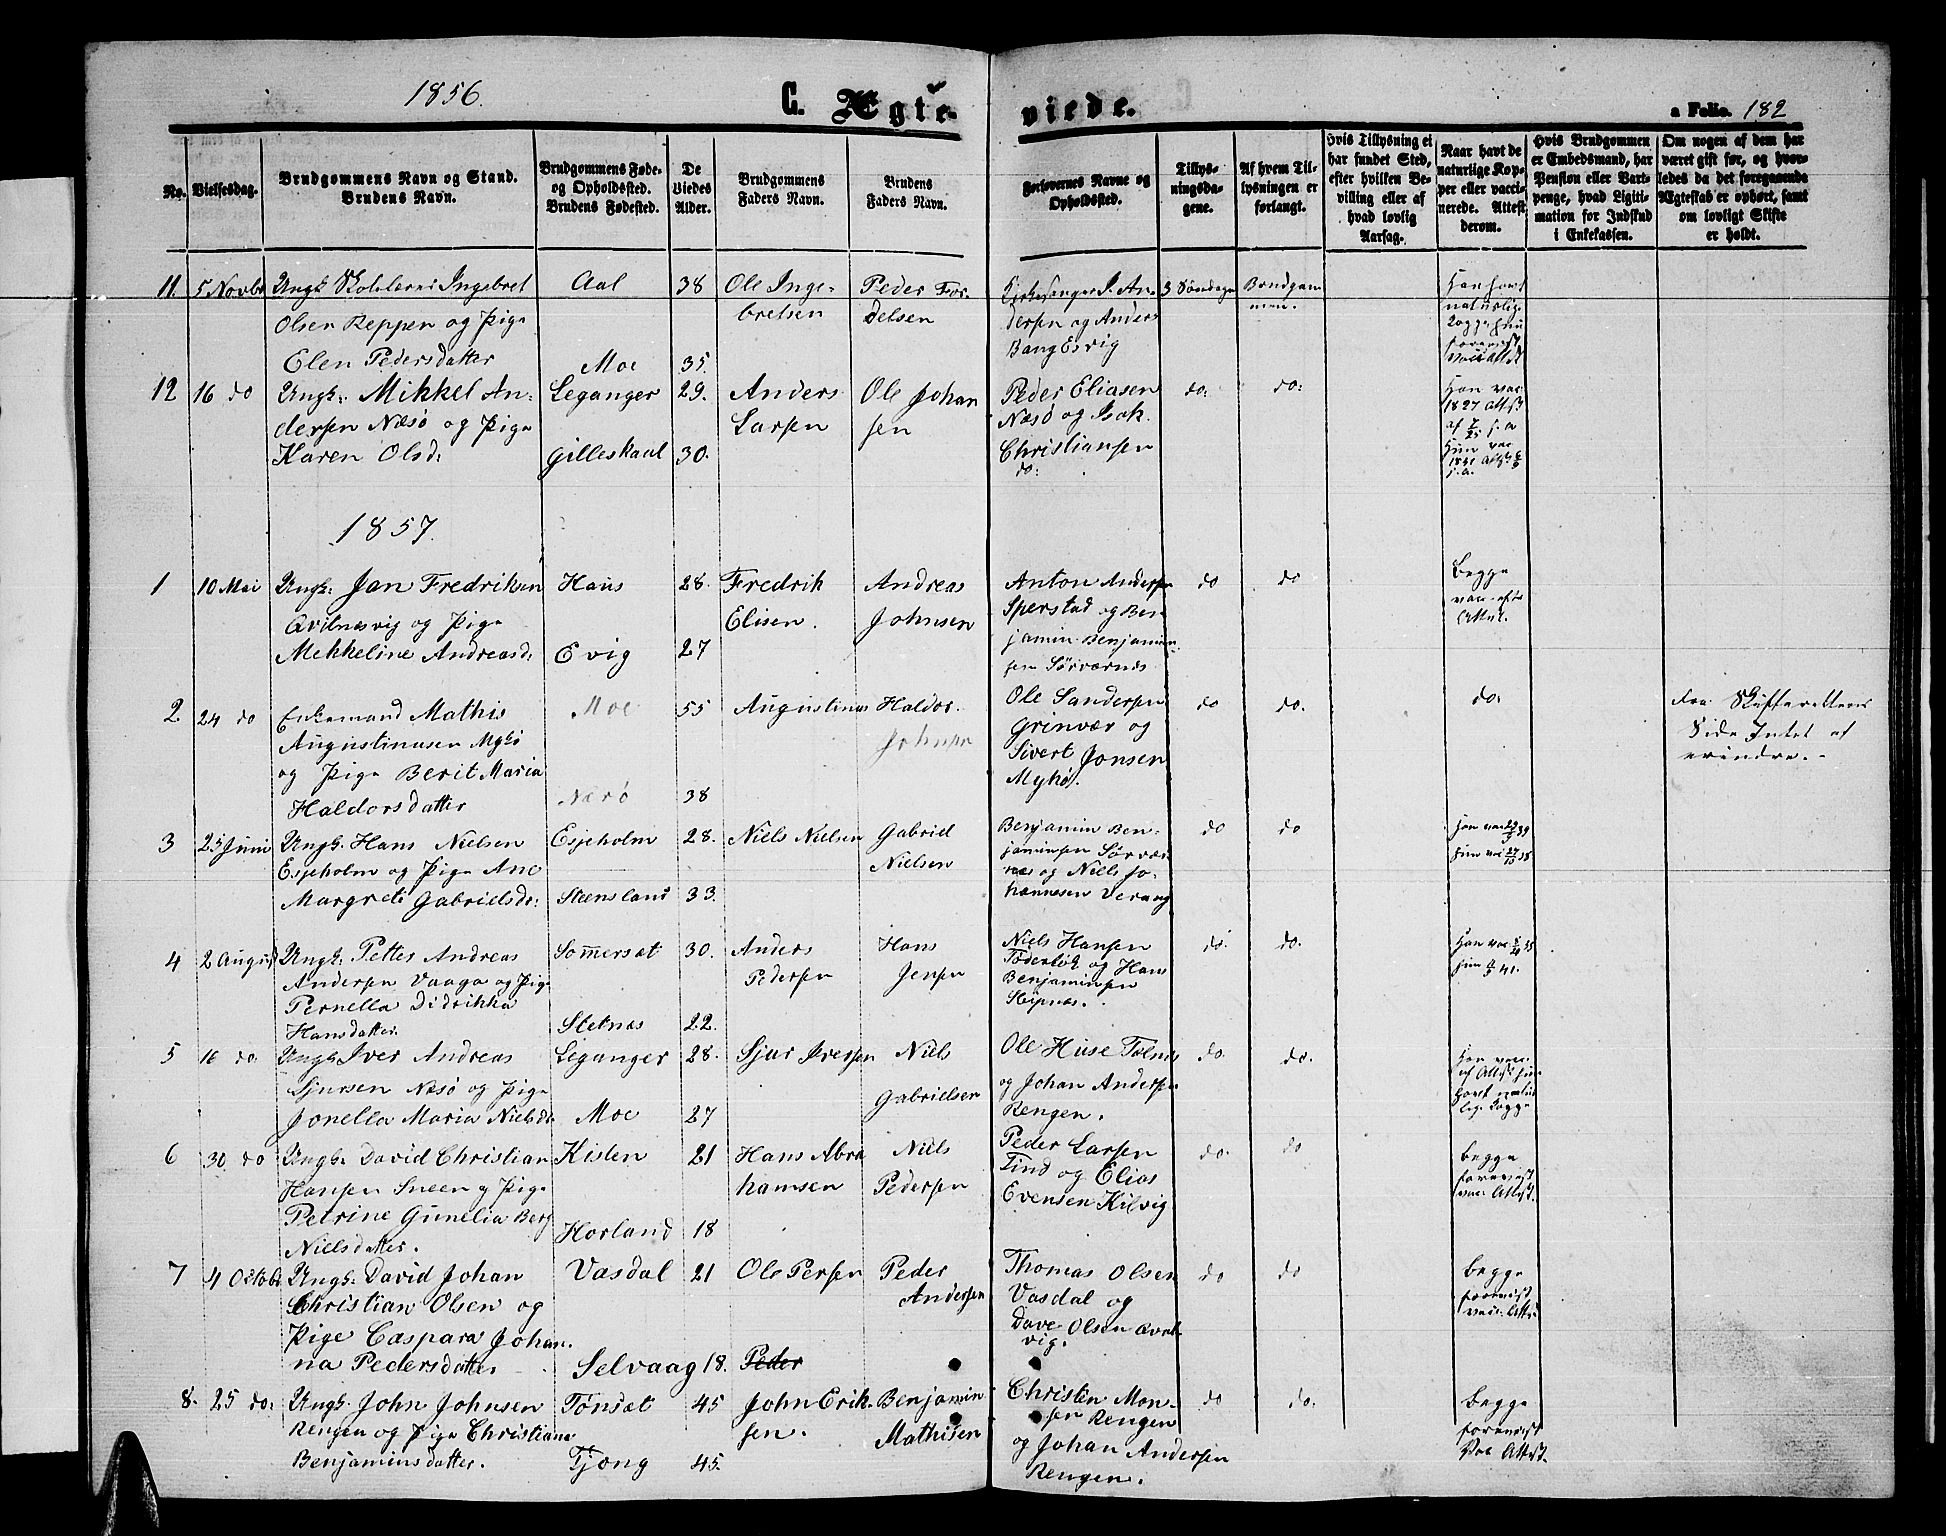 1856.
C. Ægte-
viede.
a Folio. 182
No.
Vielsesdag.
Brudgommens Navn og Stand.
Brudens Navn.
Brudgommens Føde-
og Opholdssted.
Brudens Fødested.
De
Viedes
Alder.
Brudgommens
Faders Navn.
Brudens
Faders Navn.
Forlovernes Navne og
Opholdssted.
Tillys-
ningsda-
gene.
Af hvem Til-
lysningen er
forlangt.
Hvis Tillysning ei
har fundet Sted,
efter hvilken Be-
villing eller af
hvad lovlig
Aarsag.
Naar havt de
naturlige Kop-
per eller vacci-
nerede. Attest
derom.
Hvis Brudgommen
er Embedsmand, har
Pension eller Vart-
penge, hvad Ligiti-
mation for Indskud
i Enkekassen.
Om nogen af dem har
været gift før, og hvor-
ledes da det foregaaende
Ægteskab er ophørt, samt
om lovligt Skifte
er holdt.
11. 5 Novbr Ungk Skolelærer Ingebret Aal 38 Ole Inge- Peder For- Kirkesanger J. An- 3 Søndage Brudgom
Olsen Reppen og Pige bretsen delsen dersen og Anders men.
Elen Pedersdatter Moe 35. Bang Esvig
Han havt
naturlig
Kopper, hun
forevist
vacc Attest
12 16 do Ungk: Mikkel An- Leganger 29. Anders Ole Johan Peder Eliasen do: do:
dersen Næsø og Pige Larsen sen Næsø og Isak
Karen Olsd: Gilleskaal 30. Christiansen
do:
Han vac
1827 Attst
Hun vac
1857.
1 10 Mai Ungk: Jan Fredriksen Haus 28. Fredrik Andreas Anton Andersen do do Begge
Avilnæsvig og Pige Elisen. Johnsen Sperstad og Ben
Mekkeline Andreasd: Evig 27 jamin Benjamin
sen Sørværnes
2 24 do Enkemand Mathis Moe 55 Augustinus Haldor. Ole Sandersen do do. do. Fra Skifterettens
Augustinusen Mykø Johnsen Grinvær og Side Intet at
og Pige Berit Maria Sivert Jonsen erindre.
Haldorsdatter Nærø 38 Mykø.
3 25 Juni Ungk. Hans Nielsen Esjeholm 28. Niels Nielsen Gabriel Benjamin Ben- do do
Esjeholm og Pige Ane Nielsen jaminsen Sørvær
Margrete Gabrielsdr: Steensland 33. næs og Niels Jo-
hannesen Verang
4 2 August Ungk. Petter Andreas Sommersæt 30. Anders Hans Niels Hansen do. do.
Andersen Vaaga og Pige Pedersen Jensen og Hans
Pernella Didrikka Benjaminsen
Hansdatter. Stetnæs 22.
5 16 do Ungk Iver Andreas Leganger 28. Sjur Iversen Niels Ole Huse Tolnes do. do.
Sjursen Næsø og Pige Gabrielsen og Johan Andersen
Jonella Maria Nielsdr. Moe 27 Rengen.
6 30. do Ungk. David Christian Kisten 21 Hans Abra Niels Peder Larsen do. do Begge
Hansen Sneen og Pige hamsen Pedersen Tind og Elias forevist
Petrine Gunelia Berg Horland 18 Evensen Kilvig vac: Attest.
Nielsdatter.
7 4 Octobr Ungk. David Johan Vasdal 21 Ole Persen Peder Thomas Olsen do do Begge
Christian Olsen og Andersen Vasdal og forevist
Pige Caspara Johan Dave Olsen vac: Attst
na Pedersdatter Selvaag 18. Peder vig.
8. 25 do: Ungk. John Johnsen Tønsæt 45 John Erik- Benjamin Christen Mon- do do. Begge
Rengen og Pige Christiane sen. Mathisen sen Rengen forevist
Benjaminsdatter. Tjong 45. og Johan Andersen Vac Attest.
Rengen.